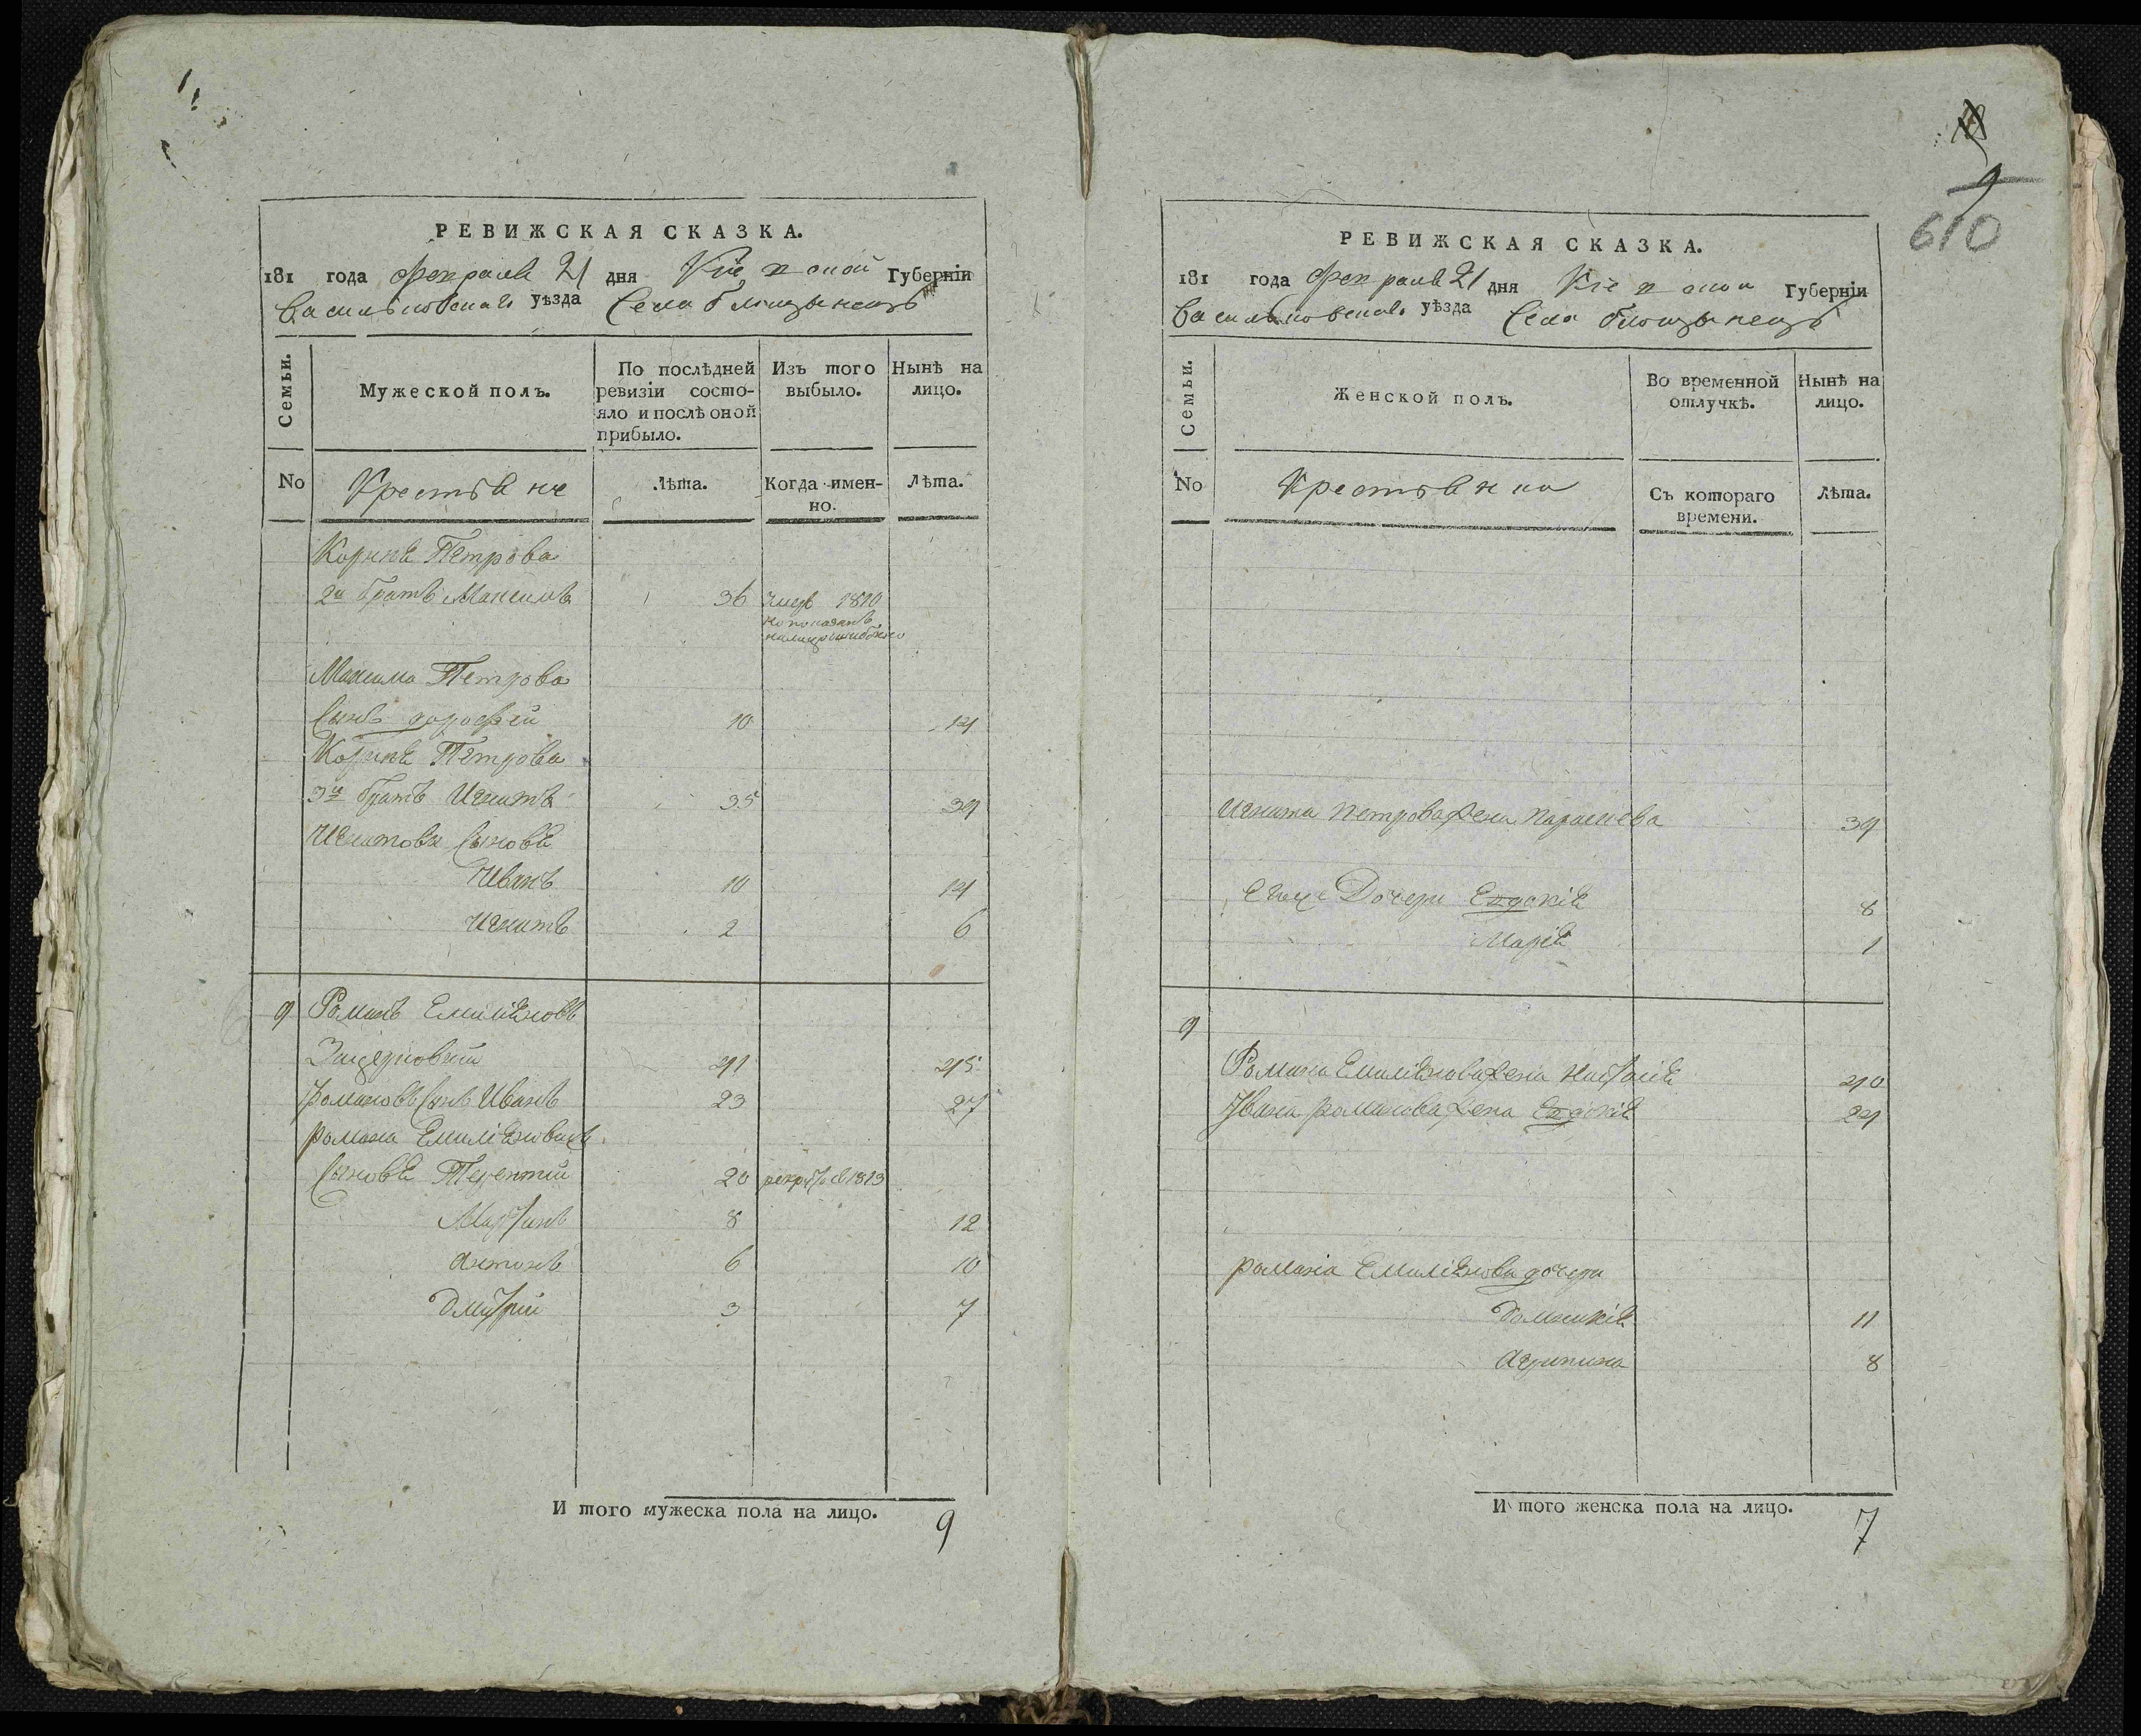 РЕВИЖСКАЯ СКАЗКА.
181 года февраля 21 дня Кіевской Губерніи
Васильковскаго уѣзда Села блощынецъ
Семьи.
Мужеской полъ.
По послѣдней ревизіи состо-
яло и послѣ оной
прибыло.
Изъ того
выбыло.
Нынѣ на
лицо.
No Крестьяне Лѣта. Когда имен-
но. Лѣта.
Корнея Петрова
2й братъ Максимъ 36 умеръ 1810
но показанъ
Максима Петрова
Сынъ дорофей 10 14
Корнея Петрова
3й братъ Игнатъ 35 39
Игнатовы Сыновья
Иванъ 10 14
Игнатъ 2 6
9 Романъ Емиліяновъ
41 45
Романовъ Сынъ Иванъ 23 27
Романа Емиліянова
Сыновья Терентій 20 рекрутъ 1813
Мартинъ 8 12
Антонъ 6 10
Дмитрій 3 7
И того мужеска пола на лицо. 9
10
9
610
РЕВИЖСКАЯ СКАЗКА.
181 года февраля 21 дня Кіевской Губерніи
Васильковскаго уѣзда Села блощынецъ
Семьи.
Женской полъ.
Во временной
отлучкѣ.
Нынѣ на
лицо.
No Крестьянки Съ котораго
времени. Лѣта.
Игната Петрова жена Параскева 39
Дочери Евдокія 8
Марія 1
9
Романа Емиліянова жена Настасія 40
Ивана романова жена Евдокія 24
романа Емиліянова дочери
Домникія 11
Агрипина 8
И того женска пола на лицо. 7